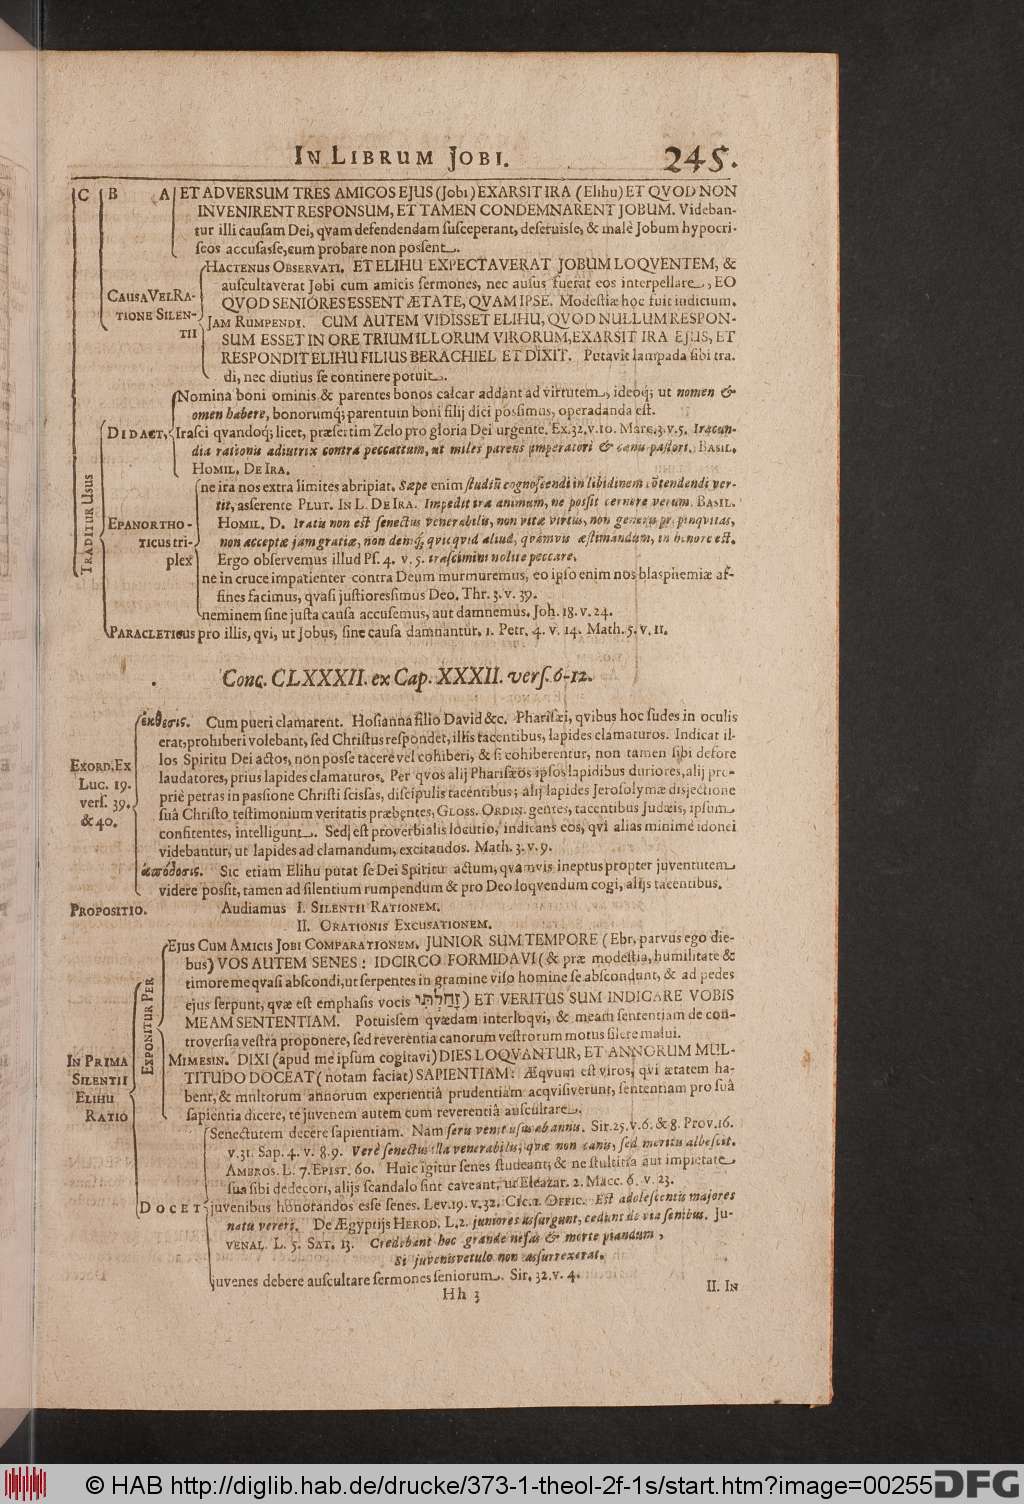 IN LIBRUM JOBI. 245.
C B A ET ADVERSUM TRES AMICOS EJUS (Jobi) EXARSIT IRA (Elihu) ET QVOD NON
INVENIRENT RESPONSUM, ET TAMEN CONDEMNARENT JOBUM. Videban-
tur illi causam Dei, qvam defendendam susceperant, deseruisse, & malè Jobum hypocri-
seos accusasse, cum probare non possent.
HACTENUS OBSERVATI. ET ELIHU EXPECTAVERAT JOBUM LOQVENTEM, &
auscultaverat Jobi cum amicis sermones, nec ausus fuerat eos interpellare, EO
CAUSA VEL RA- QVOD SENIORES ESSENT ÆTATE, QVAM IPSE. Modestiæ hoc fuit indicium.
TIONE SILEN- JAM RUMPENDI. CUM AUTEM VIDISSET ELIHU, QVOD NULLUM RESPON-
TII SUM ESSET IN ORE TRIUM ILLORUM VIRORUM, EXARSIT IRA EJUS, ET
RESPONDIT ELIHU FILIUS BERACHIEL ET DIXIT. Putavit lampada sibi tra-
di, nec diutius se continere potuit.
Nomina boni ominis & parentes bonos calcar addant ad virtutem, ideoq; ut nomen &
omen habere, bonorumq; parentum boni filij dici possimus, operadanda est.
DIDACT, Irasci qvandoq; licet, præsertim Zelo pro gloria Dei urgente. Ex. 32. v. 10. Marc. 3. v. 5. Iracun-
dia rationis adiutrix contra peccattum, ut miles parens imperatori & canis pastori. BASIL.
HOMIL. DE IRA.
TRADITUR USUS
ne ira nos extra limites abripiat. Sæpe enim studiū cognoscendi in libidinem cōtendendi ver-
tit, asserente PLUT. IN L. DE IRA. Impedit ira animum, ne possit cernere verum. BASIL.
EPANORTHO- HOMIL. D. Iratis non est senectus venerabilis, non vitæ virtus, non generis propinqvitas,
TICUS tri- non acceptæ jam gratiæ, non deniq; qvicqvid aliud, qvamvis æstimandum, in honore est.
plex Ergo observemus illud Ps. 4. v. 5. irascimini nolite peccare.
ne in cruce impatienter contra Deum murmuremus, eo ipso enim nos blasphemiæ af-
fines facimus, qvasi justioressimus Deo. Thr. 3. v. 39.
neminem sine justa causa accusemus, aut damnemus. Joh. 18. v. 24.
PARACLETICUS pro illis, qvi, ut Jobus, sine causa damnantur. 1. Petr. 4. v. 14. Math. 5. v. 11.
Conc. CLXXXII. ex Cap. XXXII. vers. 6-12.
ἔκθεσις. Cum pueri clamarent. Hosianna filio David &c. Pharisæi, qvibus hoc sudes in oculis
erat, prohiberi volebant, sed Christus respondet, illis tacentibus, lapides clamaturos. Indicat il-
los Spiritu Dei actos, non posse tacere vel cohiberi, & si cohiberentur, non tamen sibi defore
EXORD. EX laudatores, prius lapides clamaturos. Per qvos alij Pharisæos ipsos lapidibus duriores, alij pro-
Luc. 19. priè petras in passione Christi scissas, discipulis tacentibus; alij lapides Jerosolymæ disjectione
vers. 39. suâ Christo testimonium veritatis præbentes, GLOSS. ORDIN. gentes, tacentibus Judæis, ipsum
& 40. confitentes, intelligunt. Sed est proverbialis locutio, indicans eos, qvi alias minimè idonei
videbantur, ut lapides ad clamandum, excitandos. Math. 3. v. 9.
ἀπόδοσις. Sic etiam Elihu putat se Dei Spiritur actum, qvamvis ineptus propter juventutem
videre possit, tamen ad silentium rumpendum & pro Deo loqvendum cogi, alijs tacentibus.
PROPOSITIO. Audiamus I. SILENTII RATIONEM.
II. ORATIONIS EXCUSATIONEM.
Ejus CUM AMICIS JOBI COMPARATIONEM. JUNIOR SUM TEMPORE (Ebr. parvus ego die-
bus) VOS AUTEM SENES: IDCIRCO FORMIDAVI (& præ modestia, humilitate &
timore me qvasi abscondi, ut serpentes in gramine viso homine se abscondunt, & ad pedes
ejus serpunt, qvæ est emphasis vocis זָחַלְתִּי) ET VERITUS SUM INDICARE VOBIS
MEAM SENTENTIAM. Potuissem qvædam interloqvi, & meam sententiam de con-
troversia vestra proponere, sed reverentia canorum vestrorum motus silere malui.
EXPONITUR PER
IN PRIMA MIMESIN. DIXI (apud me ipsum cogitavi) DIES LOQVANTUR, ET ANNORUM MUL-
SILENTII TITUDO DOCEAT (notam faciat) SAPIENTIAM: Æqvum est viros, qvi ætatem ha-
ELIHU bent, & multorum annorum experientiâ prudentiam acqvisiverunt, sententiam pro suâ
RATIO sapientia dicere, te juvenem autem cum reverentiâ auscultare.
Senectutem decere sapientiam. Nam seris venit usus ab annis. Sir. 25. v. 6. & 8. Prov. 16.
v. 31. Sap. 4. v. 8. 9. Verè senectus illa venerabilis, qvæ non canis, sed meritis albescit.
AMBROS. L. 7. EPIST. 60. Huic igitur senes studeant; & ne stultitia aut impietate
sua sibi dedecori, alijs scandalo sint caveant, ut Eleazar. 2. Macc. 6. v. 23.
DOCET juvenibus honorandos esse senes. Lev. 19. v. 32. CIC. 1. OFFIC. Est adolescentis majores
natu vereri. De Ægyptijs HEROD. L. 2. juniores assurgunt, cedunt de via senibus. JU-
VENAL. L. 5. SAT. 13. Credebant hoc grande nefas & morte piandum,
Si juvenis vetulo non assurrexerat.
juvenes debere auscultare sermones seniorum. Sir. 32. v. 4.
Hh 3 II. IN
© HAB http://diglib.hab.de/drucke/373-1-theol-2f-1s/start.htm?image=00255 DFG